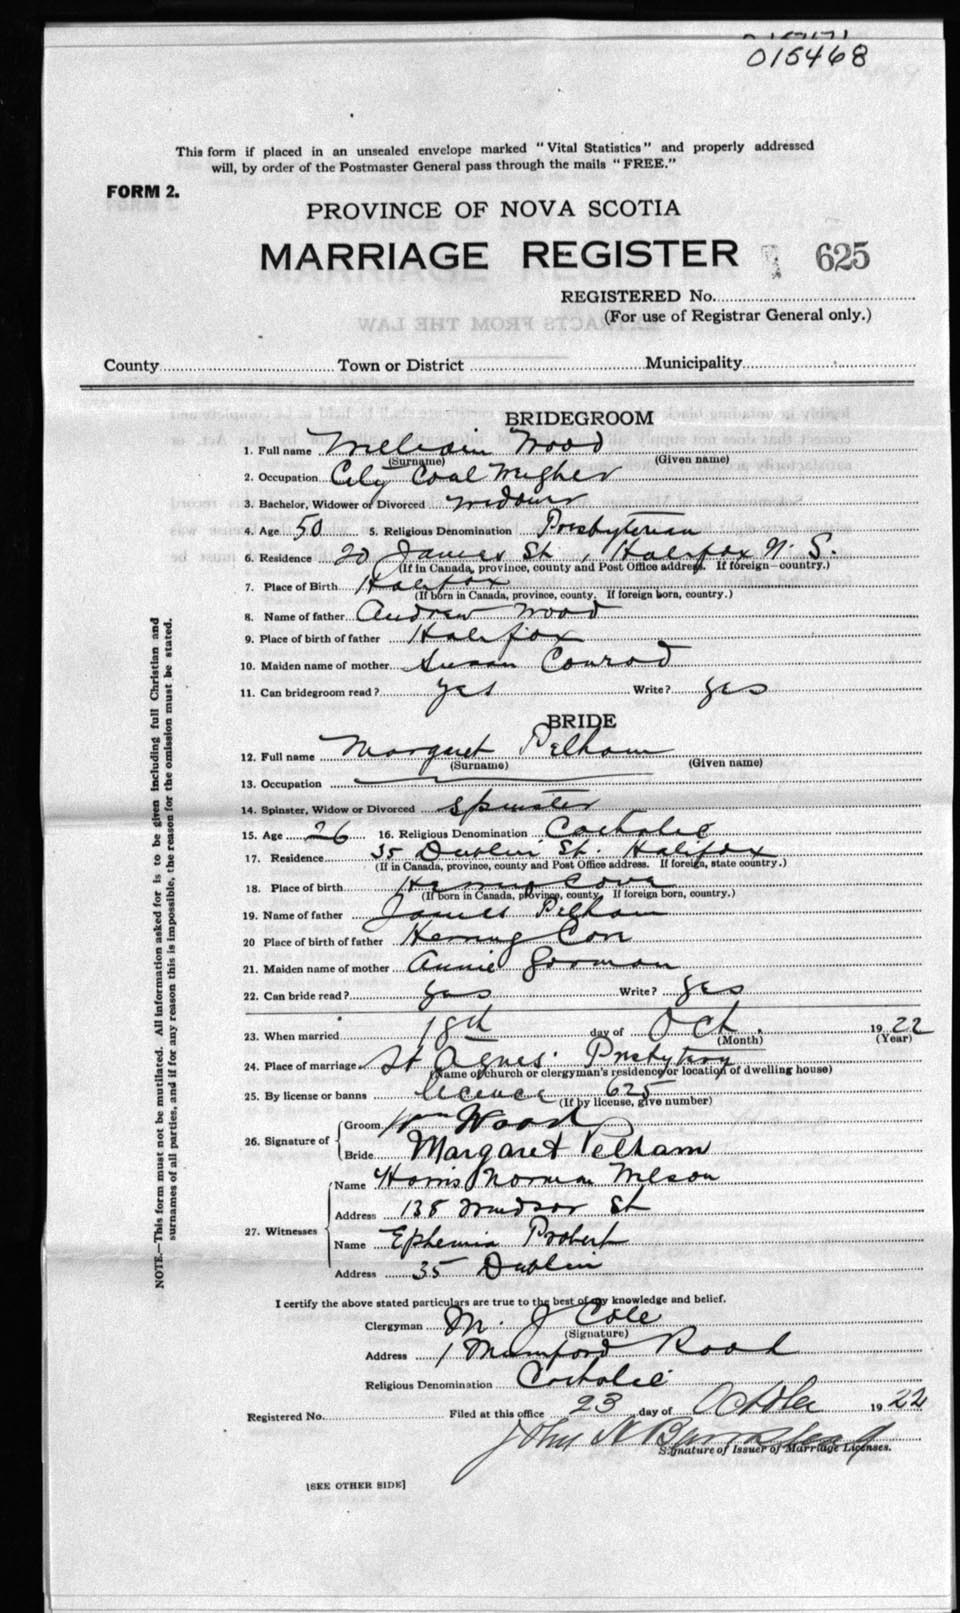 015468
This form if placed in an unsealed envelope marked "Vital Statistics" and properly addressed
will, by order of the Postmaster General pass through the mails "FREE."
FORM 2.
PROVINCE OF NOVA SCOTIA
MARRIAGE REGISTER 625
REGISTERED No.
(For use of Registrar General only.)
County Town or District Municipality
BRIDEGROOM
1. Full name William Wood
(Surname) (Given name)
2. Occupation City Coal Weigher
3. Bachelor, Widower or Divorced widower
4. Age 50 5. Religious Denomination Presbyterian
6. Residence 20 James St, Halifax N. S.
(If in Canada, province, county and Post Office address. If foreign—country.)
7. Place of Birth Halifax
(If born in Canada, province, county. If foreign born, country.)
8. Name of father Andrew Wood
9. Place of birth of father Halifax
10. Maiden name of mother Susan Conrod
11. Can bridegroom read? yes Write? yes
BRIDE
12. Full name Margaret Pelham
(Surname) (Given name)
13. Occupation
14. Spinster, Widow or Divorced spinster
15. Age 26 16. Religious Denomination Catholic
17. Residence 35 Dublin St. Halifax
(If in Canada, province, county and Post Office address. If foreign, state country.)
18. Place of birth Herring Cove
(If born in Canada, province, county. If foreign born, country.)
19. Name of father James Pelham
20 Place of birth of father Herring Cove
21. Maiden name of mother Annie Gorman
22. Can bride read? yes Write? yes
23. When married 18th day of Oct. 1922
(Month) (Year)
24. Place of marriage St Agnes' Presbytery
(Name of church or clergyman's residence or location of dwelling house)
25. By license or banns licence 625
(If by license, give number)
26. Signature of Groom Wm Wood
Bride Margaret Pelham
27. Witnesses Name Harris Norman Nelson
Address 138 Windsor St
Name Ephemia Probert
Address 35 Dublin
I certify the above stated particulars are true to the best of my knowledge and belief.
Clergyman M. J Cole
(Signature)
Address 1 Mumford Road
Religious Denomination Catholic
Registered No. Filed at this office 23 day of October 1922
John H
Signature of Issuer of Marriage Licenses.
[SEE OTHER SIDE]
NOTE.—This form must not be mutilated. All information asked for is to be given including full Christian and
surnames of all parties, and if for any reason this is impossible, the reason for the omission must be stated.